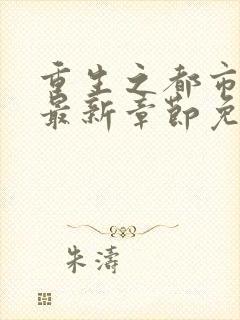 重生之都市
最新章节免
朱涛